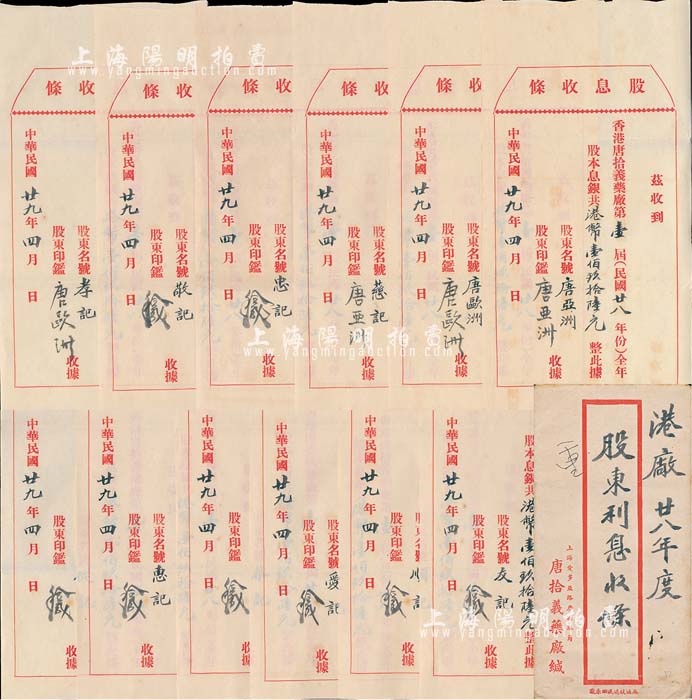 上海陽明拍賣
www.yangmingauction.com
股息收條
茲收到
香港唐拾義藥廠第壹屆(民國廿八年份)全年
股本息銀共港幣壹佰玖拾陸元 整此據
股東名號 唐亞洲
股東印鑑 唐亞洲 收據
中華民國廿九年四月 日
收條
股東名號 唐歐洲
股東印鑑 唐歐洲 收據
中華民國廿九年四月 日
收條
股東名號 慈記
股東印鑑 唐亞洲 收據
中華民國廿九年四月 日
收條
股東名號 忠記
股東印鑑 收據
中華民國廿九年四月 日
收條
股東名號 敬記
股東印鑑 收據
中華民國廿九年四月 日
收條
股東名號 孝記
股東印鑑 唐歐洲 收據
中華民國廿九年四月 日
港廠廿八年度
股東利息收條
唐拾義藥廠緘
股本息銀共港幣壹佰玖拾陸元 整此據
股東名號 友記
股東印鑑 收據
中華民國廿九年四月 日
股東名號
股東印鑑 收據
中華民國廿九年四月 日
股東名號 愛記
股東印鑑 收據
中華民國廿九年四月 日
股東印鑑
中華民國廿九年四月 日
股東名號 惠記
股東印鑑 收據
中華民國廿九年四月 日
股東印鑑
中華民國廿九年四月 日
上海陽明拍賣
www.yangmingauction.com
上海陽明拍賣
www.yangmingauction.com